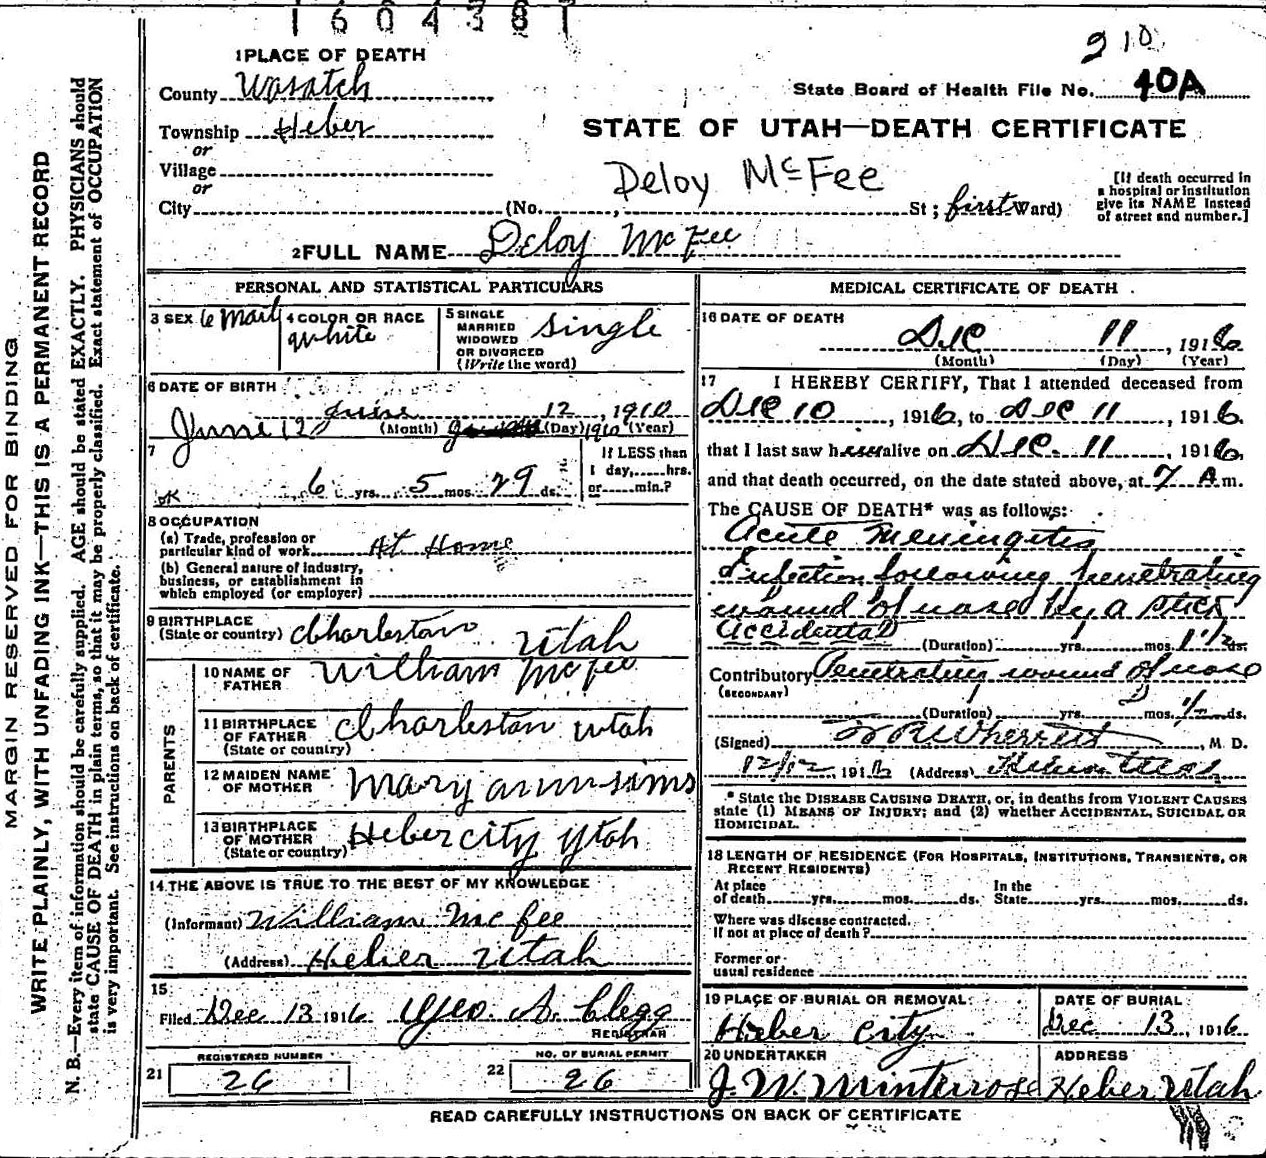 1604387
910
1 PLACE OF DEATH
County Wasatch
State Board of Health File No. 40A
Township Heber
or
STATE OF UTAH—DEATH CERTIFICATE
Village
or
Deloy McFee
[If death occurred in a hospital or institution give its NAME instead of street and number.]
City (No. , St ; first Ward)
2 FULL NAME Deloy McFee
PERSONAL AND STATISTICAL PARTICULARS
3 SEX
4 COLOR OR RACE white
5 SINGLE MARRIED WIDOWED OR DIVORCED (Write the word) Single
6 DATE OF BIRTH
June 12, 1910
June 12 (Month) (Day) 1910 (Year)
7
OK 6 yrs. 5 mos. 29 ds.
If LESS than 1 day, hrs. or min.?
8 OCCUPATION
(a) Trade, profession or particular kind of work At Home
(b) General nature of industry, business, or establishment in which employed (or employer)
9 BIRTHPLACE (State or country) Charleston Utah
PARENTS
10 NAME OF FATHER William McFee
11 BIRTHPLACE OF FATHER (State or country) Charleston Utah
12 MAIDEN NAME OF MOTHER Mary ann sims
13 BIRTHPLACE OF MOTHER (State or country) Heber city Utah
14 THE ABOVE IS TRUE TO THE BEST OF MY KNOWLEDGE
(Informant) William McFee
(Address) Heber Utah
15
Filed Dec 13 1916 Geo. A. Clegg
REGISTRAR
21 REGISTERED NUMBER 26
22 NO. OF BURIAL PERMIT 26
MEDICAL CERTIFICATE OF DEATH
16 DATE OF DEATH
Dec 11, 1916
(Month) (Day) (Year)
17 I HEREBY CERTIFY, That I attended deceased from
Dec 10, 1916, to Dec 11, 1916.
that I last saw h alive on Dec. 11, 1916,
and that death occurred, on the date stated above, at 7 A m.
The CAUSE OF DEATH* was as follows:
Acute Meningitis
Infection following penetrating
wound of nose by a stick
Accidental
(Duration) yrs. mos. 1 1/2 ds.
Contributory Penetrating wound of nose
(SECONDARY)
(Duration) yrs. mos. ds.
(Signed) , M. D.
12/12, 1916 (Address) Heber Utah
* State the DISEASE CAUSING DEATH, or, in deaths from VIOLENT CAUSES
state (1) MEANS OF INJURY; and (2) whether ACCIDENTAL, SUICIDAL OR
HOMICIDAL.
18 LENGTH OF RESIDENCE (FOR HOSPITALS, INSTITUTIONS, TRANSIENTS, OR
RECENT RESIDENTS)
At place of death yrs. mos. ds. In the State yrs. mos. ds.
Where was disease contracted.
If not at place of death?
Former or
usual residence
19 PLACE OF BURIAL OR REMOVAL: Heber City
DATE OF BURIAL Dec 13, 1916
20 UNDERTAKER J. W. Winterrose
ADDRESS Heber Utah
READ CAREFULLY INSTRUCTIONS ON BACK OF CERTIFICATE
MARGIN RESERVED FOR BINDING
WRITE PLAINLY, WITH UNFADING INK—THIS IS A PERMANENT RECORD
N. B.—Every item of information should be carefully supplied. AGE should be stated EXACTLY. PHYSICIANS should
state CAUSE OF DEATH in plain terms, so that it may be properly classified. Exact statement of OCCUPATION
is very important. See instructions on back of certificate.